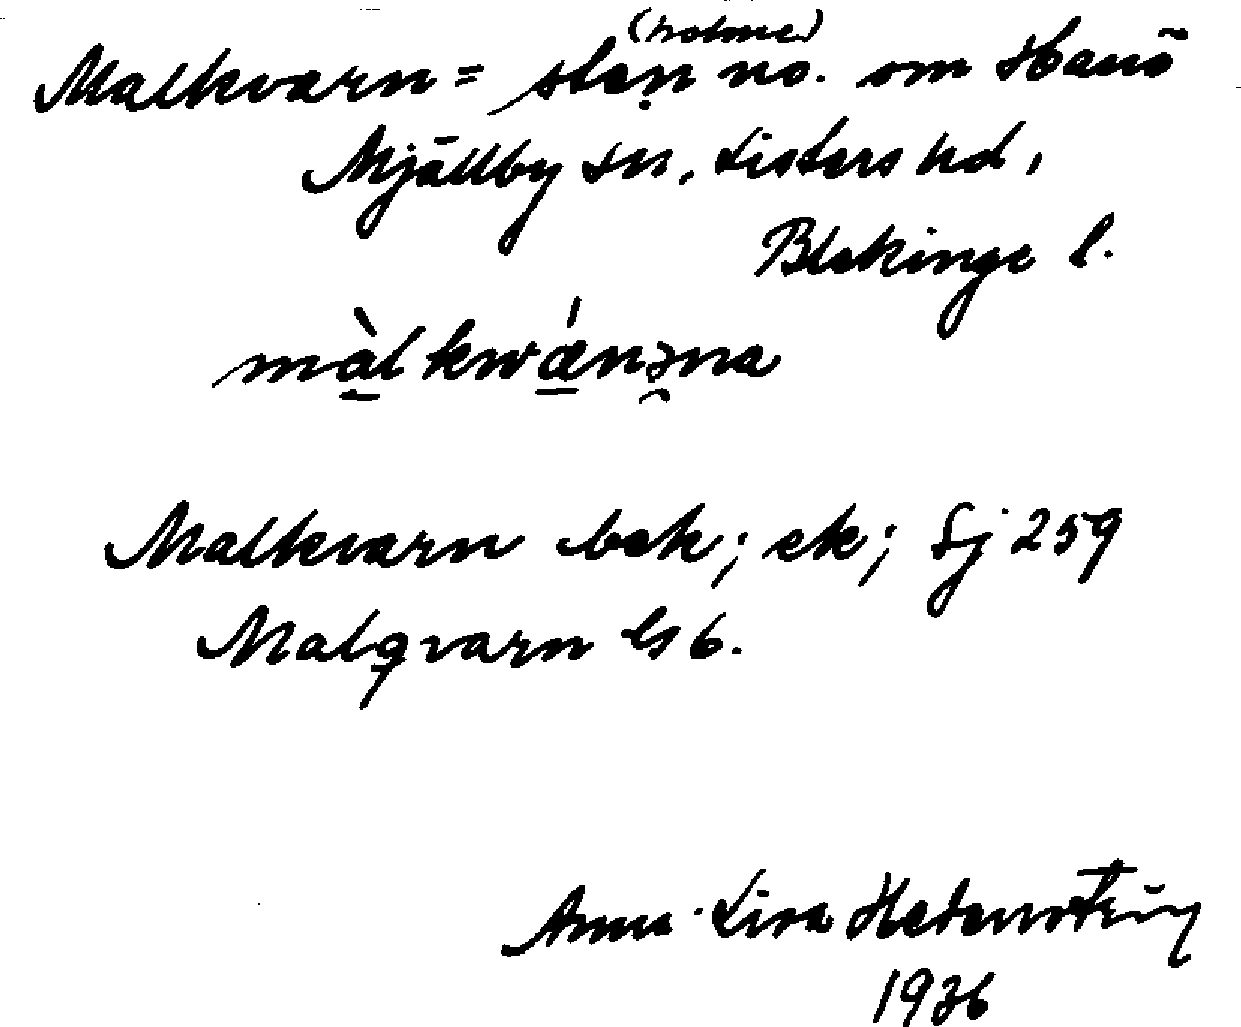 (holme)
Malkvarn = sten no. om Hanö
Mjällby sn, Listers hd,
Blekinge l.
màlkwǽnəna
Malkvarn bek; ek; Sj 259
Malqvarn GS 6.
Anna-Lisa
1936